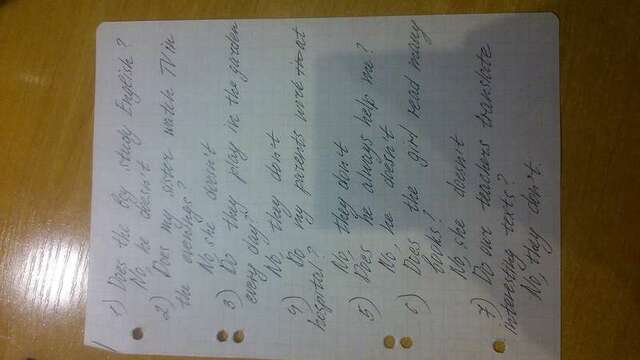 1) Does the boy study English?
No, he doesn't
2) Does my sister watch TV in
the evenings?
No, she doesn't
3) Do they play in the garden
every day?
No, they don't
4) Do my parents work at
hospital?
No, they don't
5) Does he always help me?
No, he doesn't
6) Does the girl read many
books?
No, she doesn't
7) Do our teachers translate
interesting texts?
No, they don't.